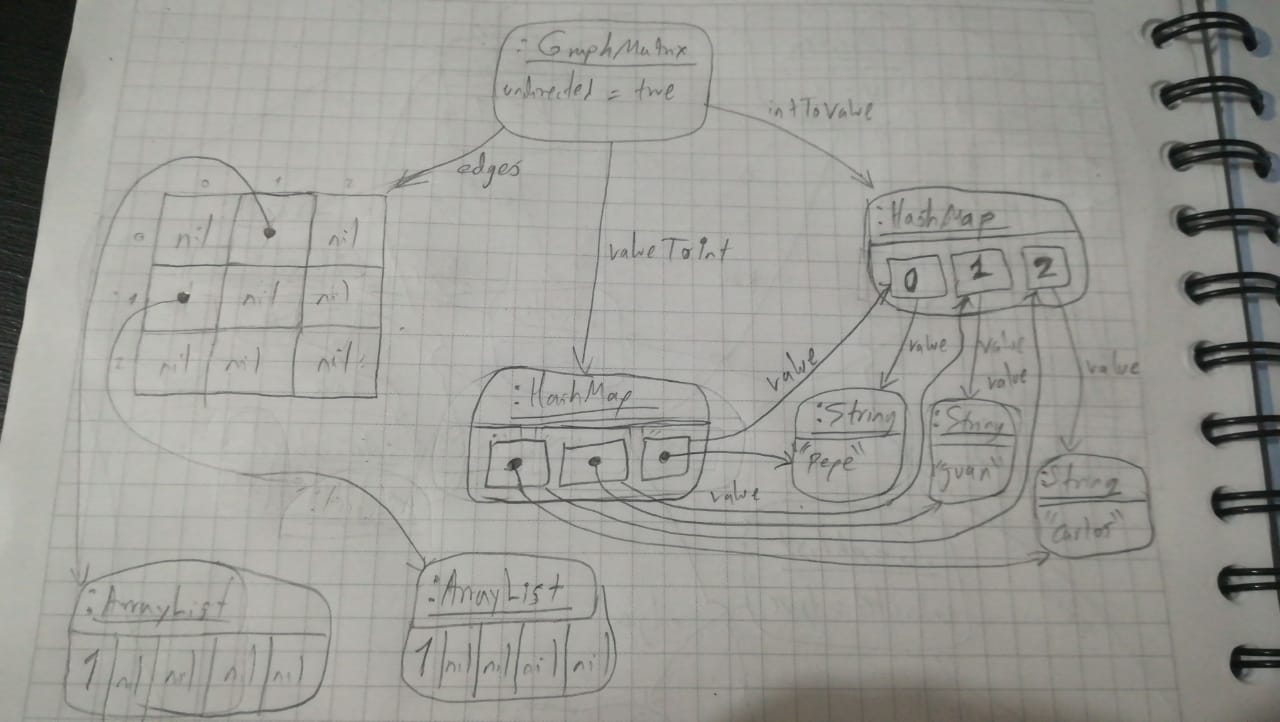 : GraphMatrix
undirected = true
intToValue
edges
0 1 2
0 nil nil
1 nil nil
2 nil nil nil
valueToInt
: HashMap
0 1 2
value
value
value
value
value
: HashMap
value
: String
"Pepe"
: String
"Juan"
: String
"Carlos"
: ArrayList
1 nil nil nil nil
: ArrayList
1 nil nil nil nil